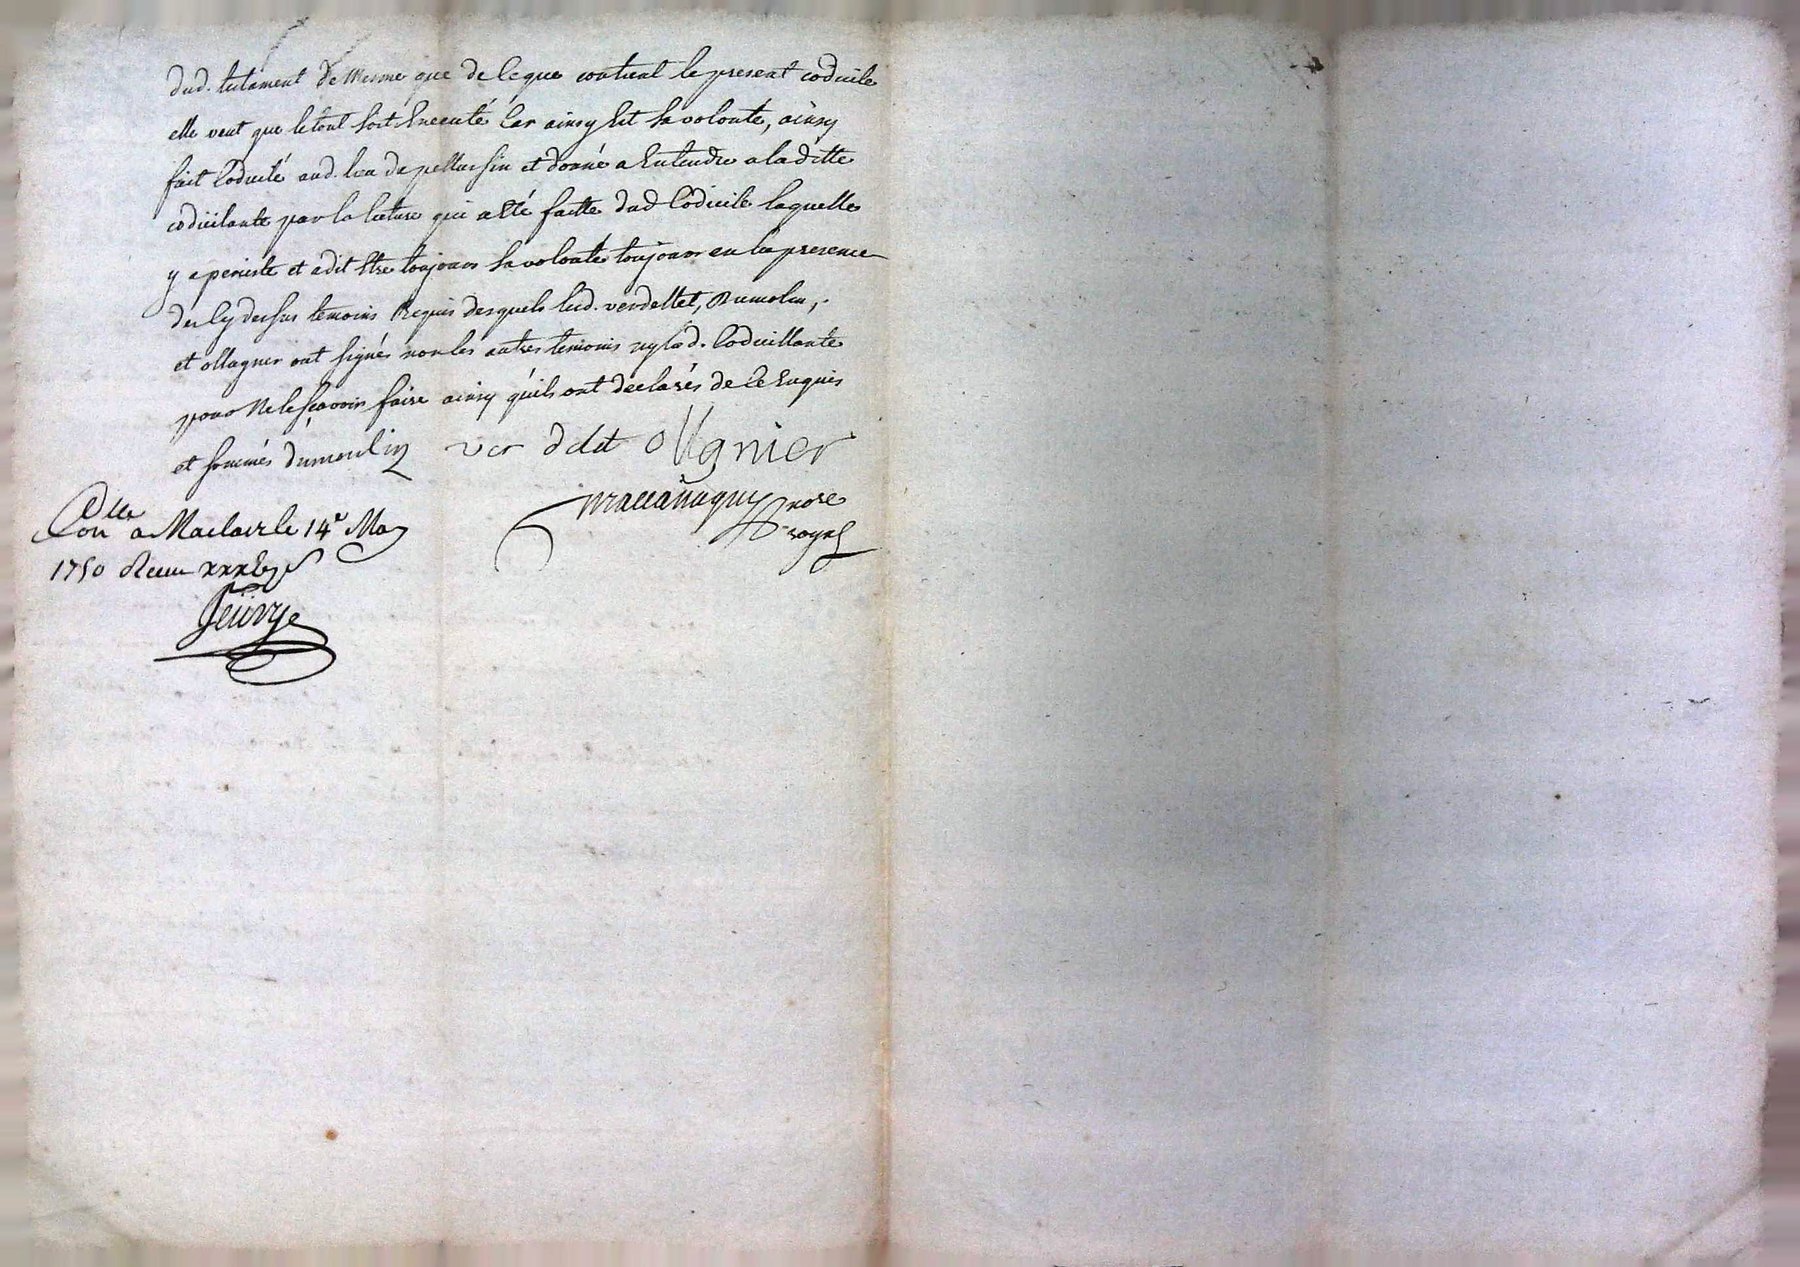 dud. testament de mesme que de ce que contient le present codicile
elle veut que le tout soit Executé Car ainsy Est sa volonte, ainsy
fait Codicilé aud. lieu de pellussin et donné a Entendre a laditte
codicilante par la lecture qui a Eté faitte dud Codicile laquelle
y a persisté et a dit Etre toujours sa volonté toujours en la presence
des Cy dessus temoins Requis desquels led. verdellet, Dumolin,
et ollagner ont signés non les autres temoins ny lad. Codicillante
pour Ne le sçavoir faire ainsy qu'ils ont declarés de ce Enquis
et sommés dumoulin ver delet ollgnier
nore
royal
Con^lle a Maclas le 14^e May
1750 Receu